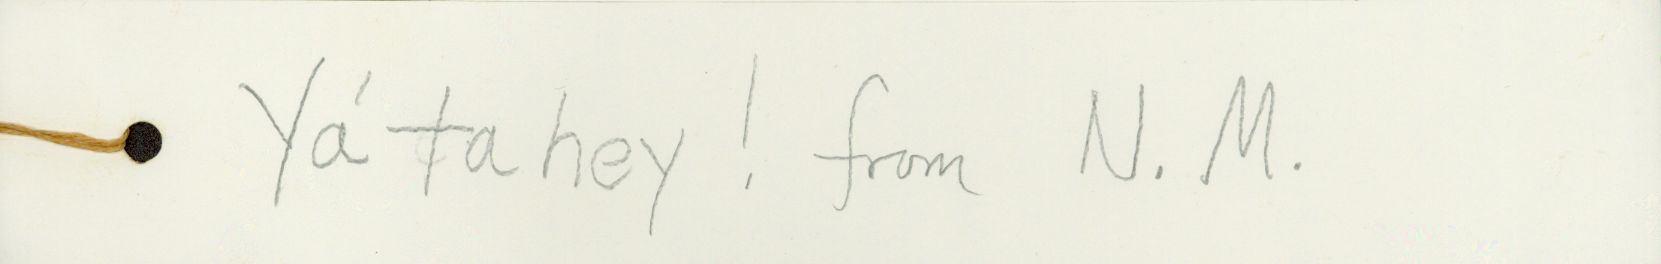 Yá ta hey! from N. M.